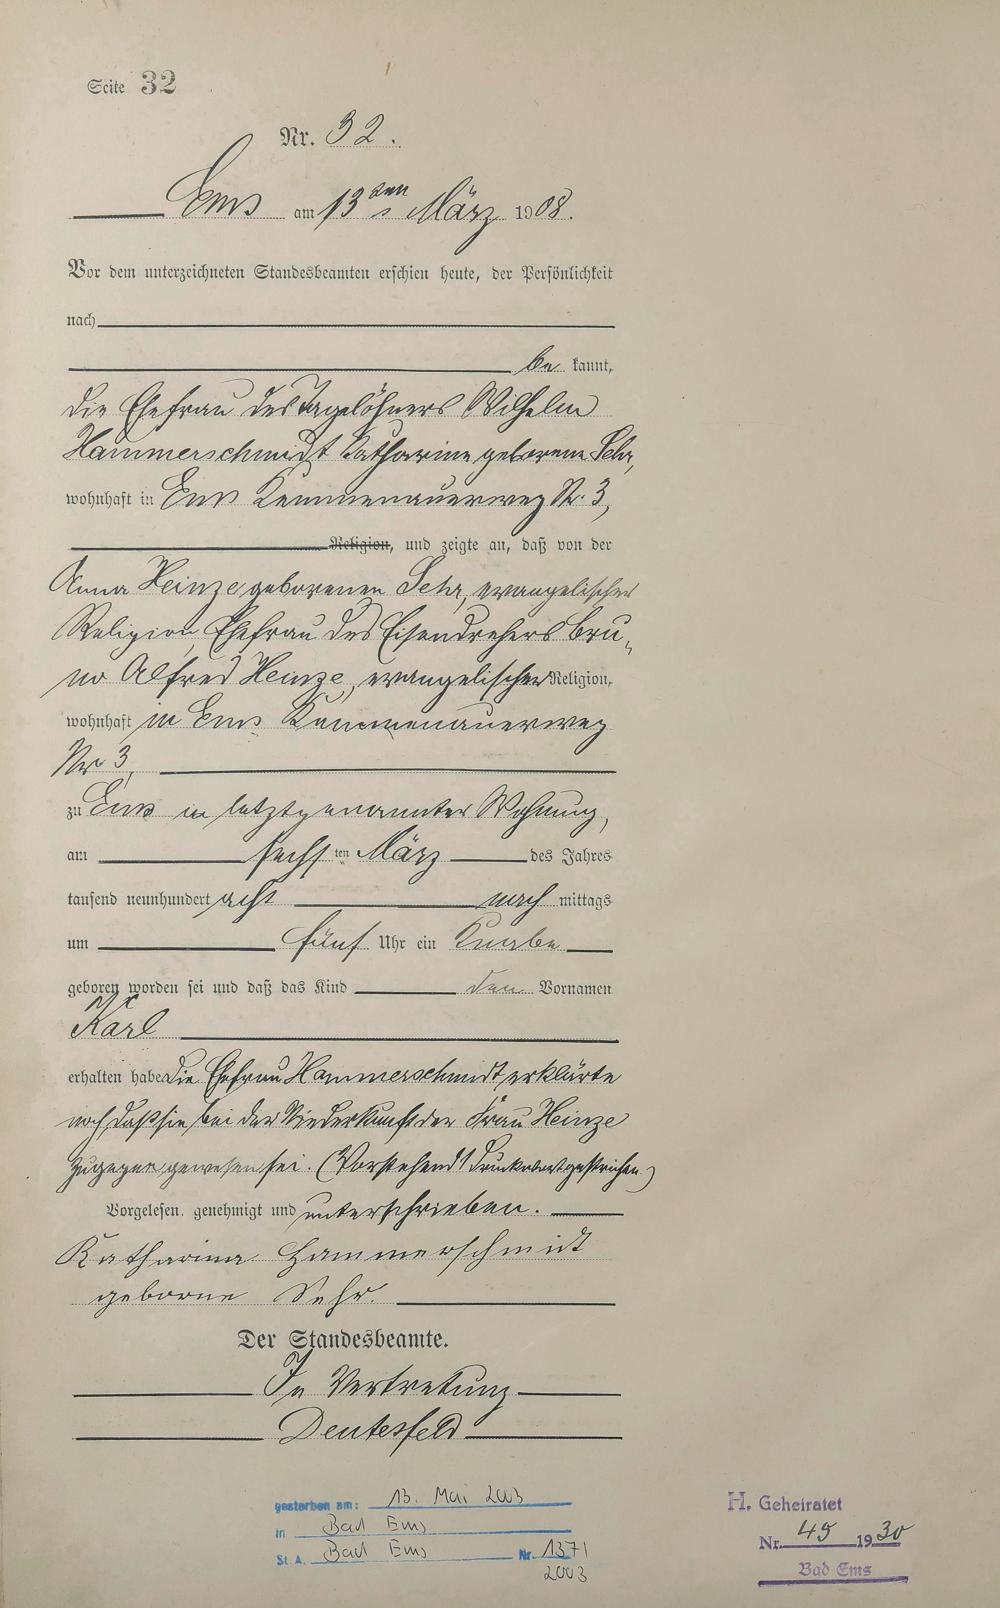 Seite 32
Nr. 32.
Ems am 13ten März 1908.
Vor dem unterzeichneten Standesbeamten erschien heute, der Persönlichkeit
nach
be kannt,
die Ehefrau des Tagelöhners Wilhelm
Hammerschmidt Katharine geborene Sehr,
wohnhaft in Ems Kemmenauerweg Nr. 3,
Religion, und zeigte an, daß von der
Anna Heinze geborenen Sehr, evangelischer
Religion, Ehefrau des Eisendrehers Bru„
no Alfred Heinze, evangelischer Religion,
wohnhaft in Ems Kemmenauerweg
Nr 3,
zu Ems in letztgenannter Wohnung,
am sechsten März des Jahres
tausend neunhundert acht nach mittags
um fünf Uhr ein Knabe
geboren worden sei und daß das Kind den Vornamen
Karl
erhalten habe. Die Ehefrau Hammerschmidt erklärte
noch, daß sie bei der Niederkunft der Frau Heinze
zugegen gewesen sei. (Vorstehend 1 Druckwort gestrichen.)
Vorgelesen, genehmigt und unterschrieben.
Katharina Hammerschmidt
geborne Sehr.
Der Standesbeamte.
In Vertretung
Deutesfeld
gestorben am: 13. Mai 2003
in Bad Ems
St. A. Bad Ems Nr. 1371
2003
H. Geheiratet
Nr. 45 1930
Bad Ems